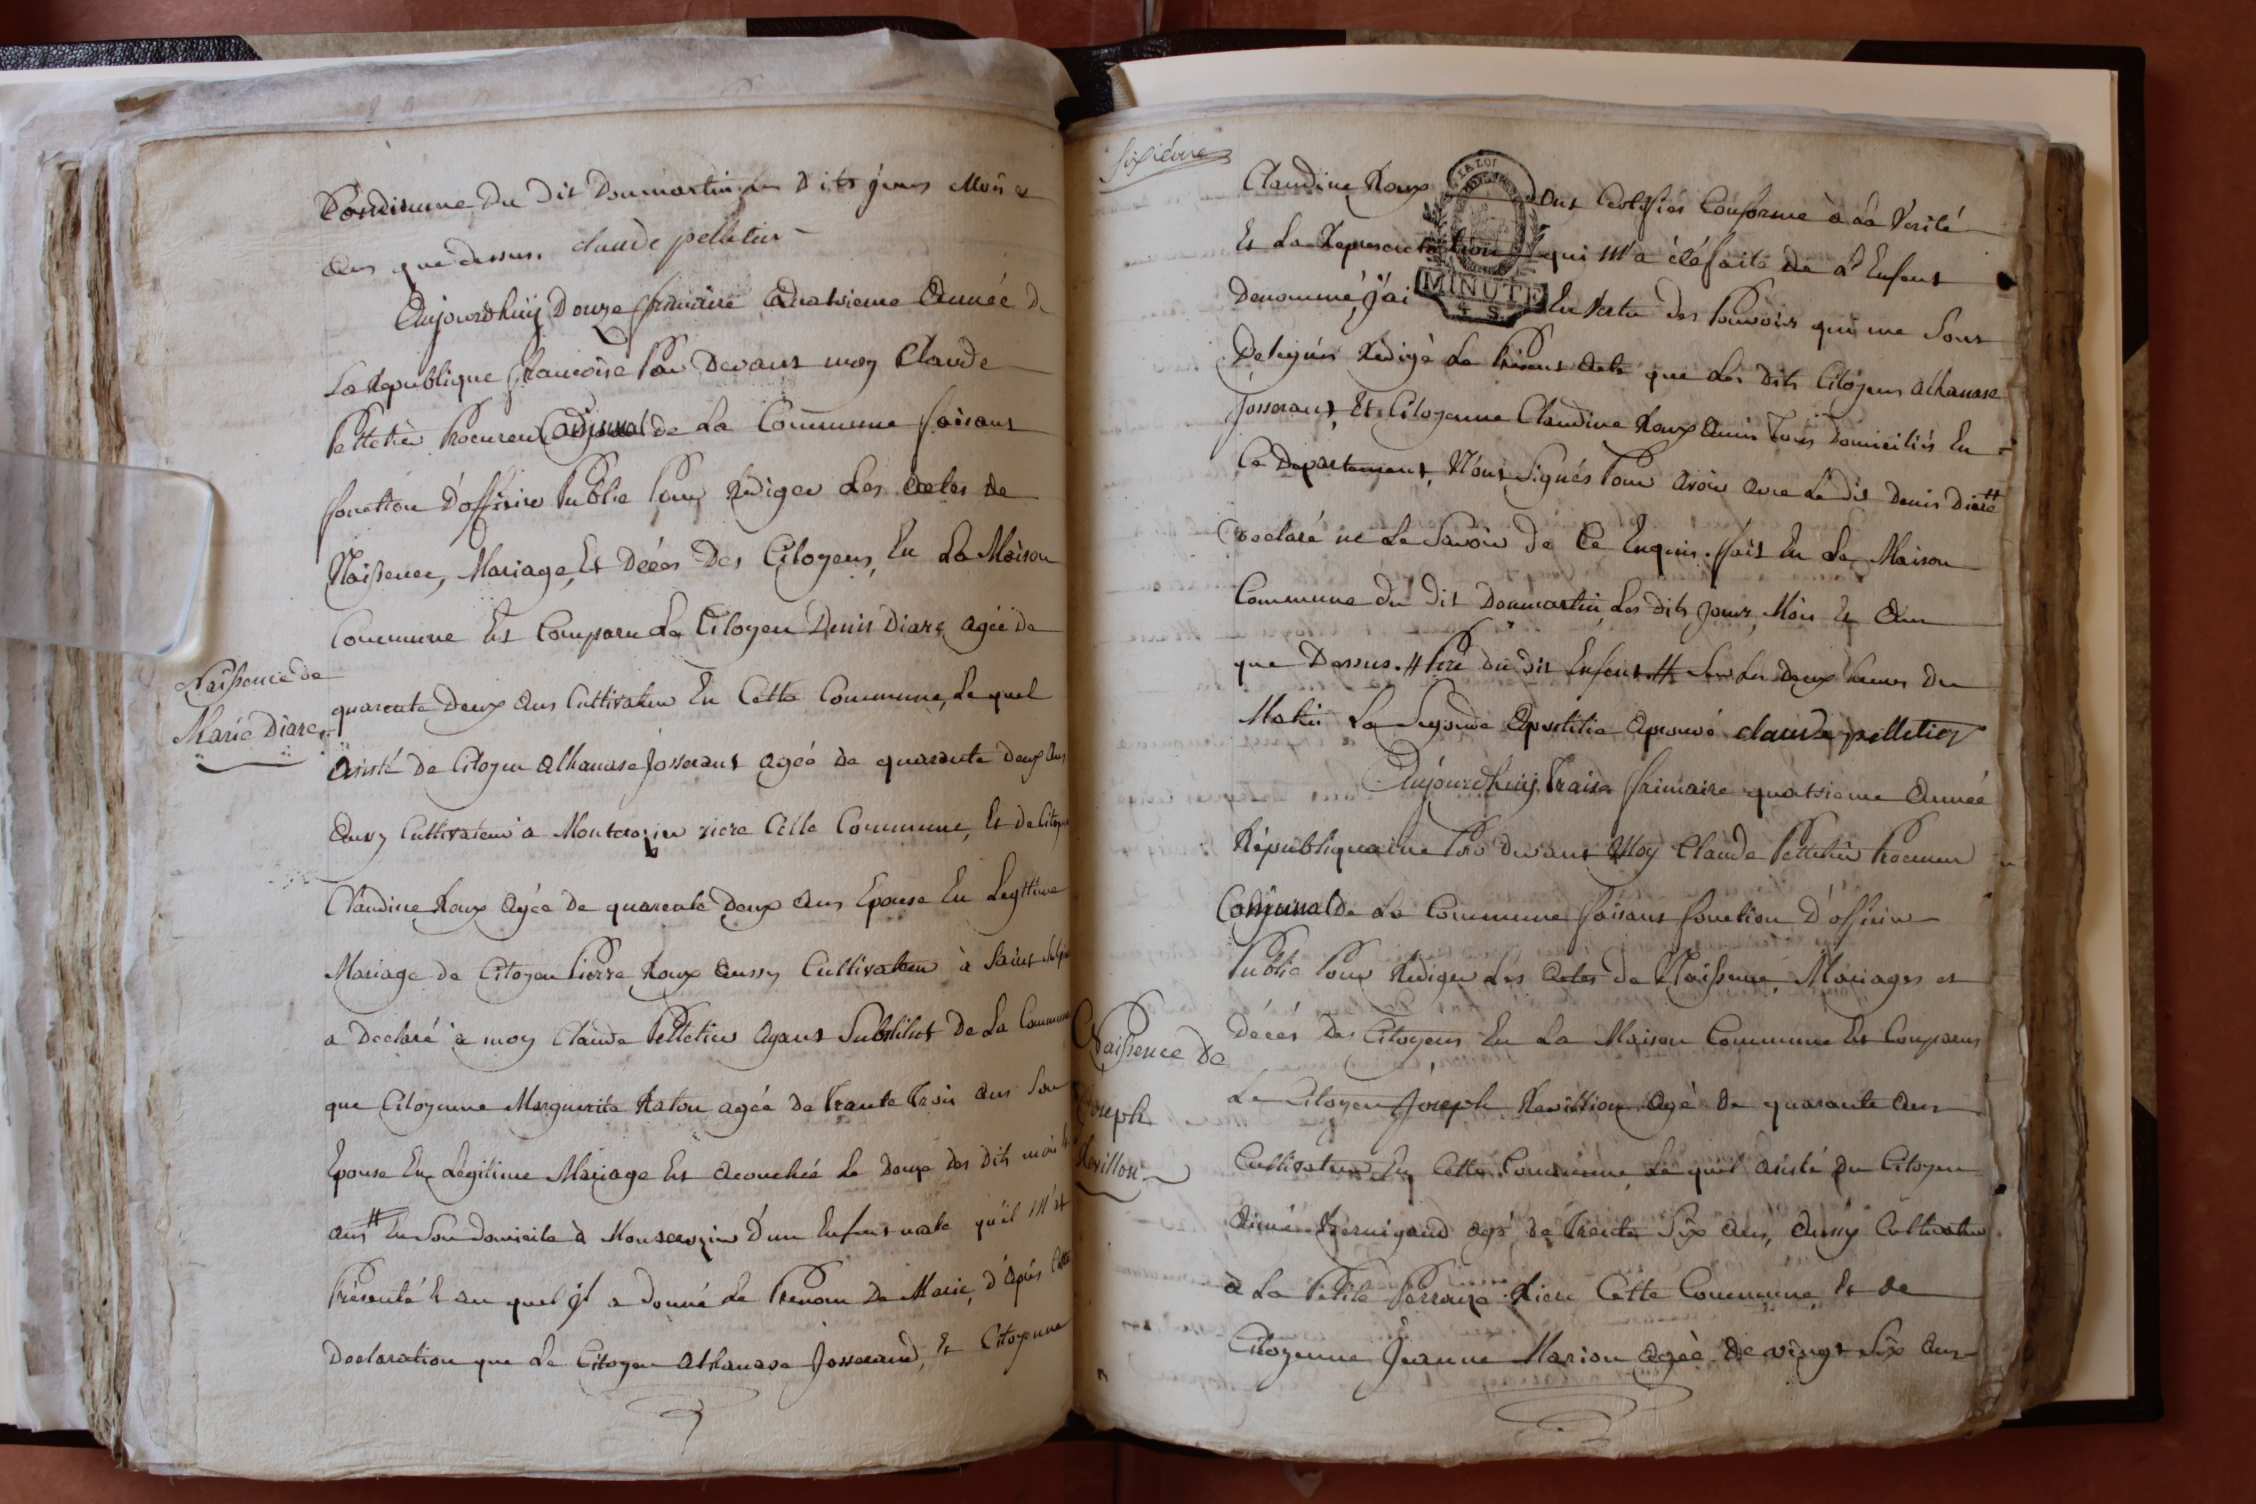 Commune Du Dit Donmartin Les Dits jours Mois et
ans que dessus. claude pelletier
Aujourdhuij Douze frimaire Quatrieme Année De
La Republique francoise Par Devant moy Claude
Pelletier Procureur Cadjunal de La Commune faisant
fonction D'officier Public Pour Rediger Les Actes de
Naissence, Mariage, Et Décés Des Citoyens, En La Maison
Commune Est Comparu Le Citoyen Denis Diare agée de
Naissence de
Marie Diare
quarente Deux ans Cultivateur En Cette Commune, Le quel
Asisté de Citoyen Athanase Josserant agée de quarante deux ans
Aussy Cultivateur a Montcrozier riere Cette Commune, Et de Citoye
Claudine Roux agée De quarente Deux ans Epouse En Legitime
Mariage de Citoyen Pierre Roux aussy Cultivateur à Saint
a Declaré à moy Claude Pelletier Agant Substitut De La Commune
que Citoyenne Marguerite Raton agée de trante trois ans Son
Epouse En Légitime Mariage Est Acouchée Le Douze Des Dits mois Et
ans # En Son Domicile à Moncrozier D'un Enfent male qu'il M'at
Présenté Et au quel Jl a Donné Le Prénom De Marie, D'Apres Cette
Declaration que Le Citoyen Athanase Josserand, Et Citoyenne
Sixiéme
Claudine Roux Ont Certifiés Conforme à La Verité
LA LOI
Et La Representation qui M'a été faite de L'Enfent
MINUTE
4 S.
Denommé, J'ai En Vertu des Pouvoirs qui me Sont
Delegués Redigé Le Présent Acte que Les Dits Citoyens Athanase
Josserant, Et Citoyenne Claudine Roux Amis Tous Domiciliés En
Ce Departement, N'ont Signés Pour Avoir Avec Le Dit Denis Diare #
Declaré ne Le Savoir De Ce Enquis. fait En La Maison
Commune du Dit Donmartin, Les Dits Jours, Mois Et Ans
que Dessus. # Pere du dit Enfent # Sur Les Deux heures Du
Matin La Segonde Apostille Aprouvé claude pelletier
Aujourdhuij Traise frimaire quatrieme Année
Républiquaine Par devant Moy Claude Pelletier Procureur
Cadjunal De La Commune faisant fonction D'officier
Public Pour Rediger Les Actes de Naissence, Mariages et
Naissence De
Joseph
Revillon
décés Des Citoyens En La Maison Commune Est Comparus
Le Citoyen Joseph Revillion Agé De quarante Ans
Cultivateur En Cette Commune Le quel Asisté Du Citoyen
Aimé Bernigaud agé de trente Six Ans, Aussy Cultivateur
à La Petite Perrouze Riere Cette Commune Et de
Citoyenne Jeanne Marion Agée de vingt Six Ans